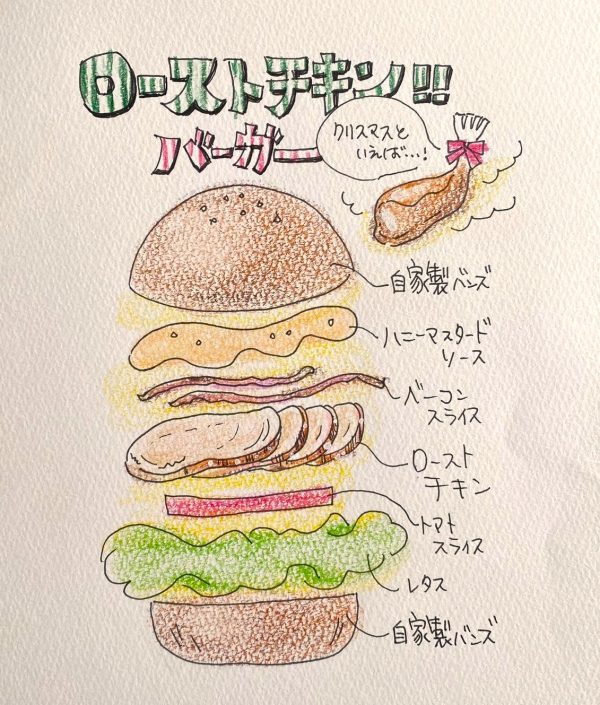 ローストチキン!!
バーガー
クリスマスと
いえば…!
自家製バンズ
ハニーマスタード
ソース
ベーコン
スライス
ロースト
チキン
トマト
スライス
レタス
自家製バンズ